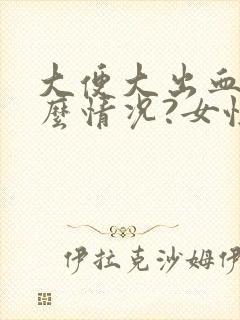 大便大出血
麼情況?女性
伊拉克沙姆伊